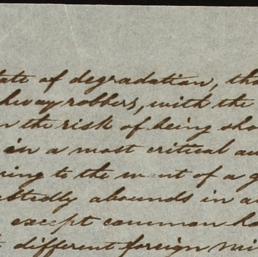 tate of degradation, tho
hway robbers, with the
n the risk of being sho
in a most critical au
ring to the want of a g
btedly abounds in a
except common ho
different foreign mi